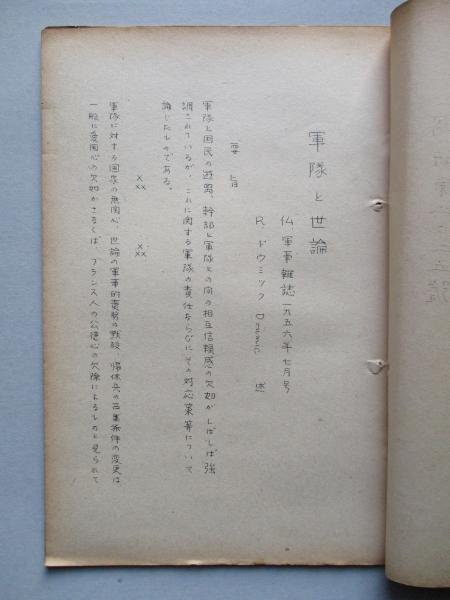 軍隊と世論
仏軍事雑誌一九五六年七月号
R.ドウミック 述
要旨
軍隊と国民の遊離、幹部と軍隊との間の相互信頼感の欠如がしばしば強
調されているが、これに関する軍隊の責任ならびにその対応策等について
論じたものである。
×××　×××
軍隊に対する国家の無関心、世論の軍事的責務の黙殺、帰休兵の召集条件の変更は
一般に愛国心の欠如かさもなくば、フランス人の公徳心の欠除によるものと見られて